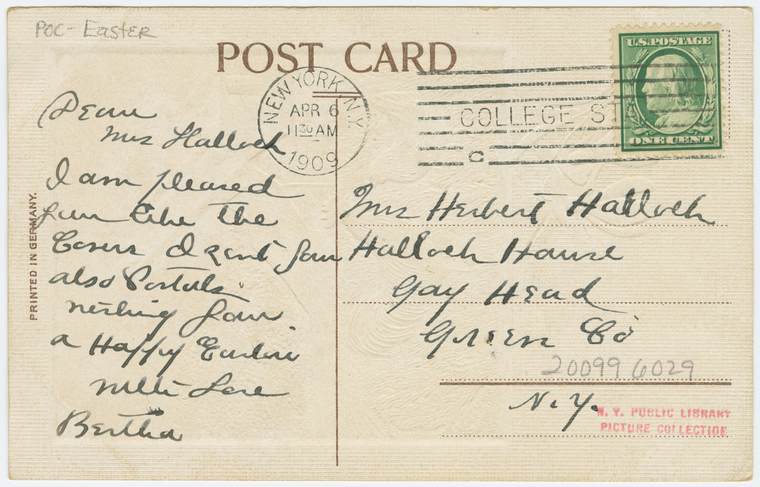 POC- Easter
POST CARD
U.S. POSTAGE
ONE CENT
NEW YORK, N.Y.
APR 6
11 30 AM
1909
COLLEGE STA
C
Dear
Mrs Hallock
I am pleased
you like the
Covers I sent you
also Postals.
wishing you
a Happy Easter
with Love
Bertha
Mrs Herbert Hallock
Hallock House
Gay Head
Green Co
N.Y.
20099 6029
N. Y. PUBLIC LIBRARY
PICTURE COLLECTION
PRINTED IN GERMANY.